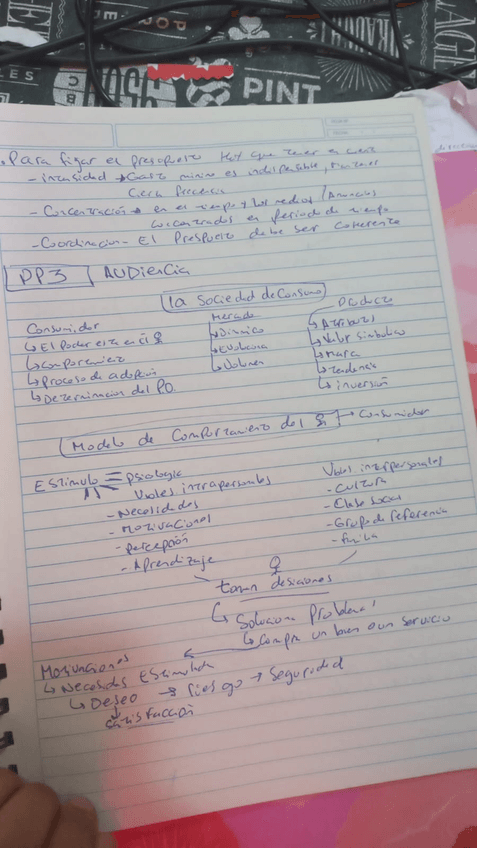 POP
PINT
. Para figar el presupuesto Hay que tener en cuenta
- intensidad → Gasto minimo es indispensable, mantener
cierta frecuencia
- Concentración → en el tiempo y los medios / Anuncios
concentrados en periodo de tiempo
- Coordinacion - El Prespuesto debe ser coherente
PP3 AUDiencia
la Sociedad de Consumo
Consumidor
↳ El poder esta en él
↳ comportamiento
↳ Proceso de adopción
↳ Determinacion del P.O.
Mercado
↳ Dinamico
↳ Evoluciona
↳ Volumen
Producto
↳ Atributos
↳ Valor simbolico
↳ Marca
↳ tendencia
↳ inversión
Modelo de Comportamiento del → Consumidor
Estimulo Psicologia
Vbles intrapersonales
- Necesidades
- Motivacional
- percepción
- Aprendizaje
Vbles interpersonales
- Cultura
- Clase social
- Grupo de referencia
- familia
toman desiciones
↳ Soluciona Problema
↳ Compra un bien o un servicio
Motivaciones
↳ Necesidad Estimulada
↳ Deseo → riesgo → Seguridad
satisfacción